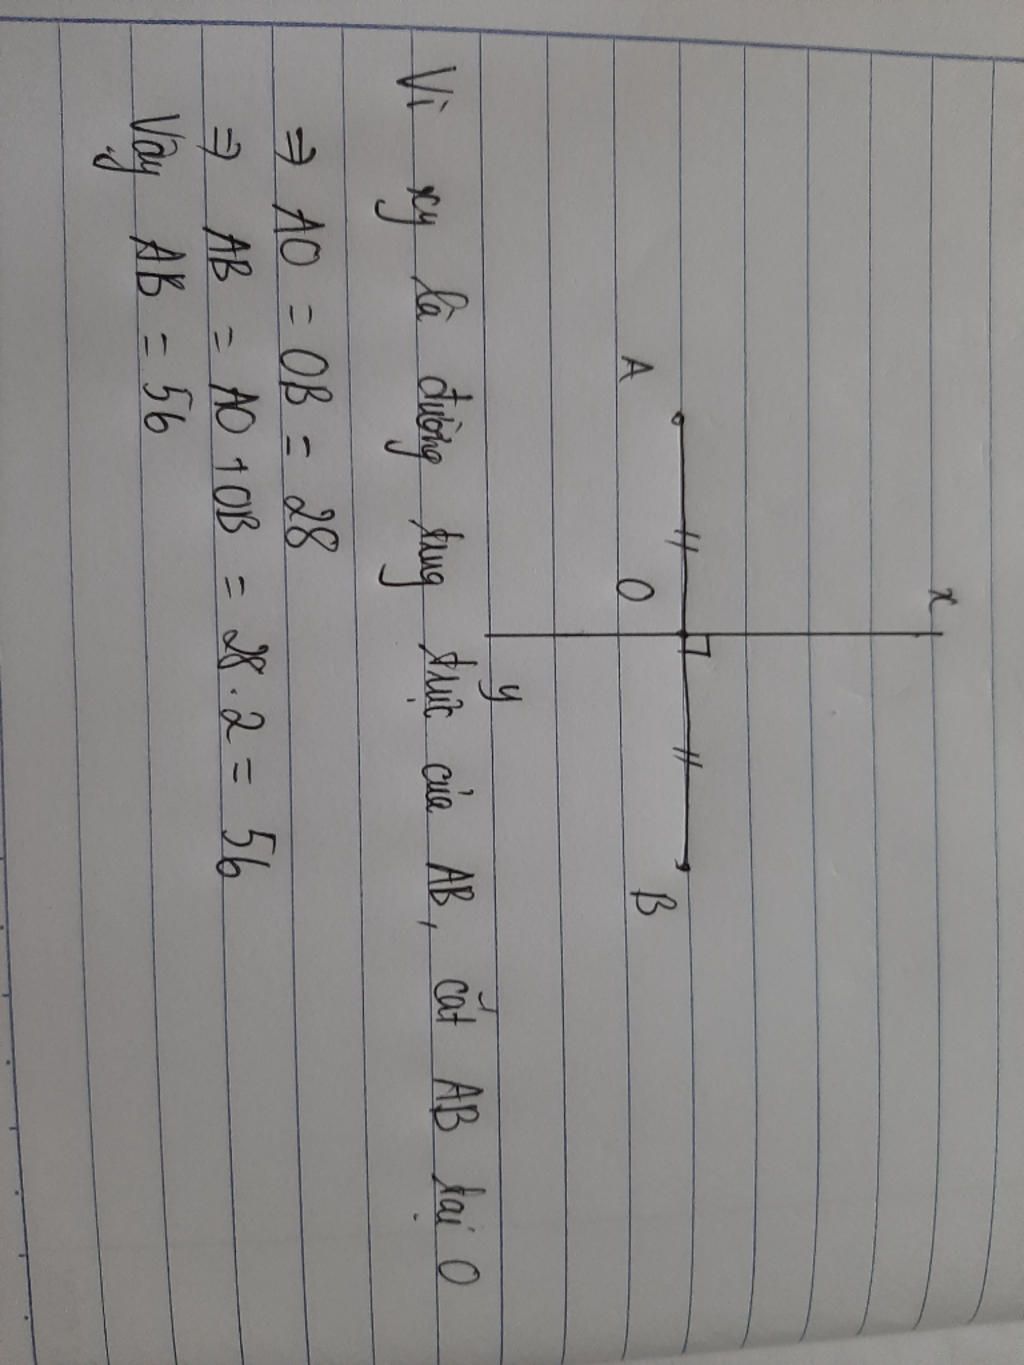 x
A O B
y
Vì xy là đường trung trực của AB, cắt AB tại O
⇒ AO = OB = 28
⇒ AB = AO + OB = 28 . 2 = 56
Vậy AB = 56